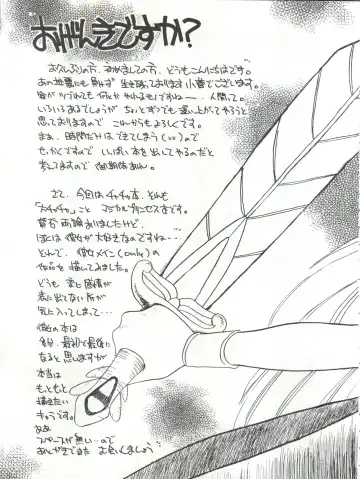 おげんきですか?
お久しぶりの方、初めましての方、どうもこんにちはです。
あの地震にも負けず生き残っております小菅でございます。
家がツブれても何とかやれるもんですねー、人間って。
いろいろあるでしょうがちょっとずつでも盛り上がってやろうと
思っておりますのでこれからもよろしくです。
まぁ、時間だけはできてしまう(いい)ので
せっかくですのでいっぱい本を出してやるのだと
考えてますので御期待あれ。
さて、今回はチャチャ本、それも
「大チャチャ」こと マジカルプリンセスさまです。
賛否両論ありましたけど、
ぼくは彼女が大好きなのですね…
とんで、彼女メイン(only)の
作品を描いてみました。
どうも 表に感情が
表に出てない所が
気に入ってしまって…
彼女の本は
今回、最初で最後に
なると思いますが
本当は
もっともっと
描きたい
キャラです。
ああ
スペースが無い…ので
あとがきでまた お会いしましょう